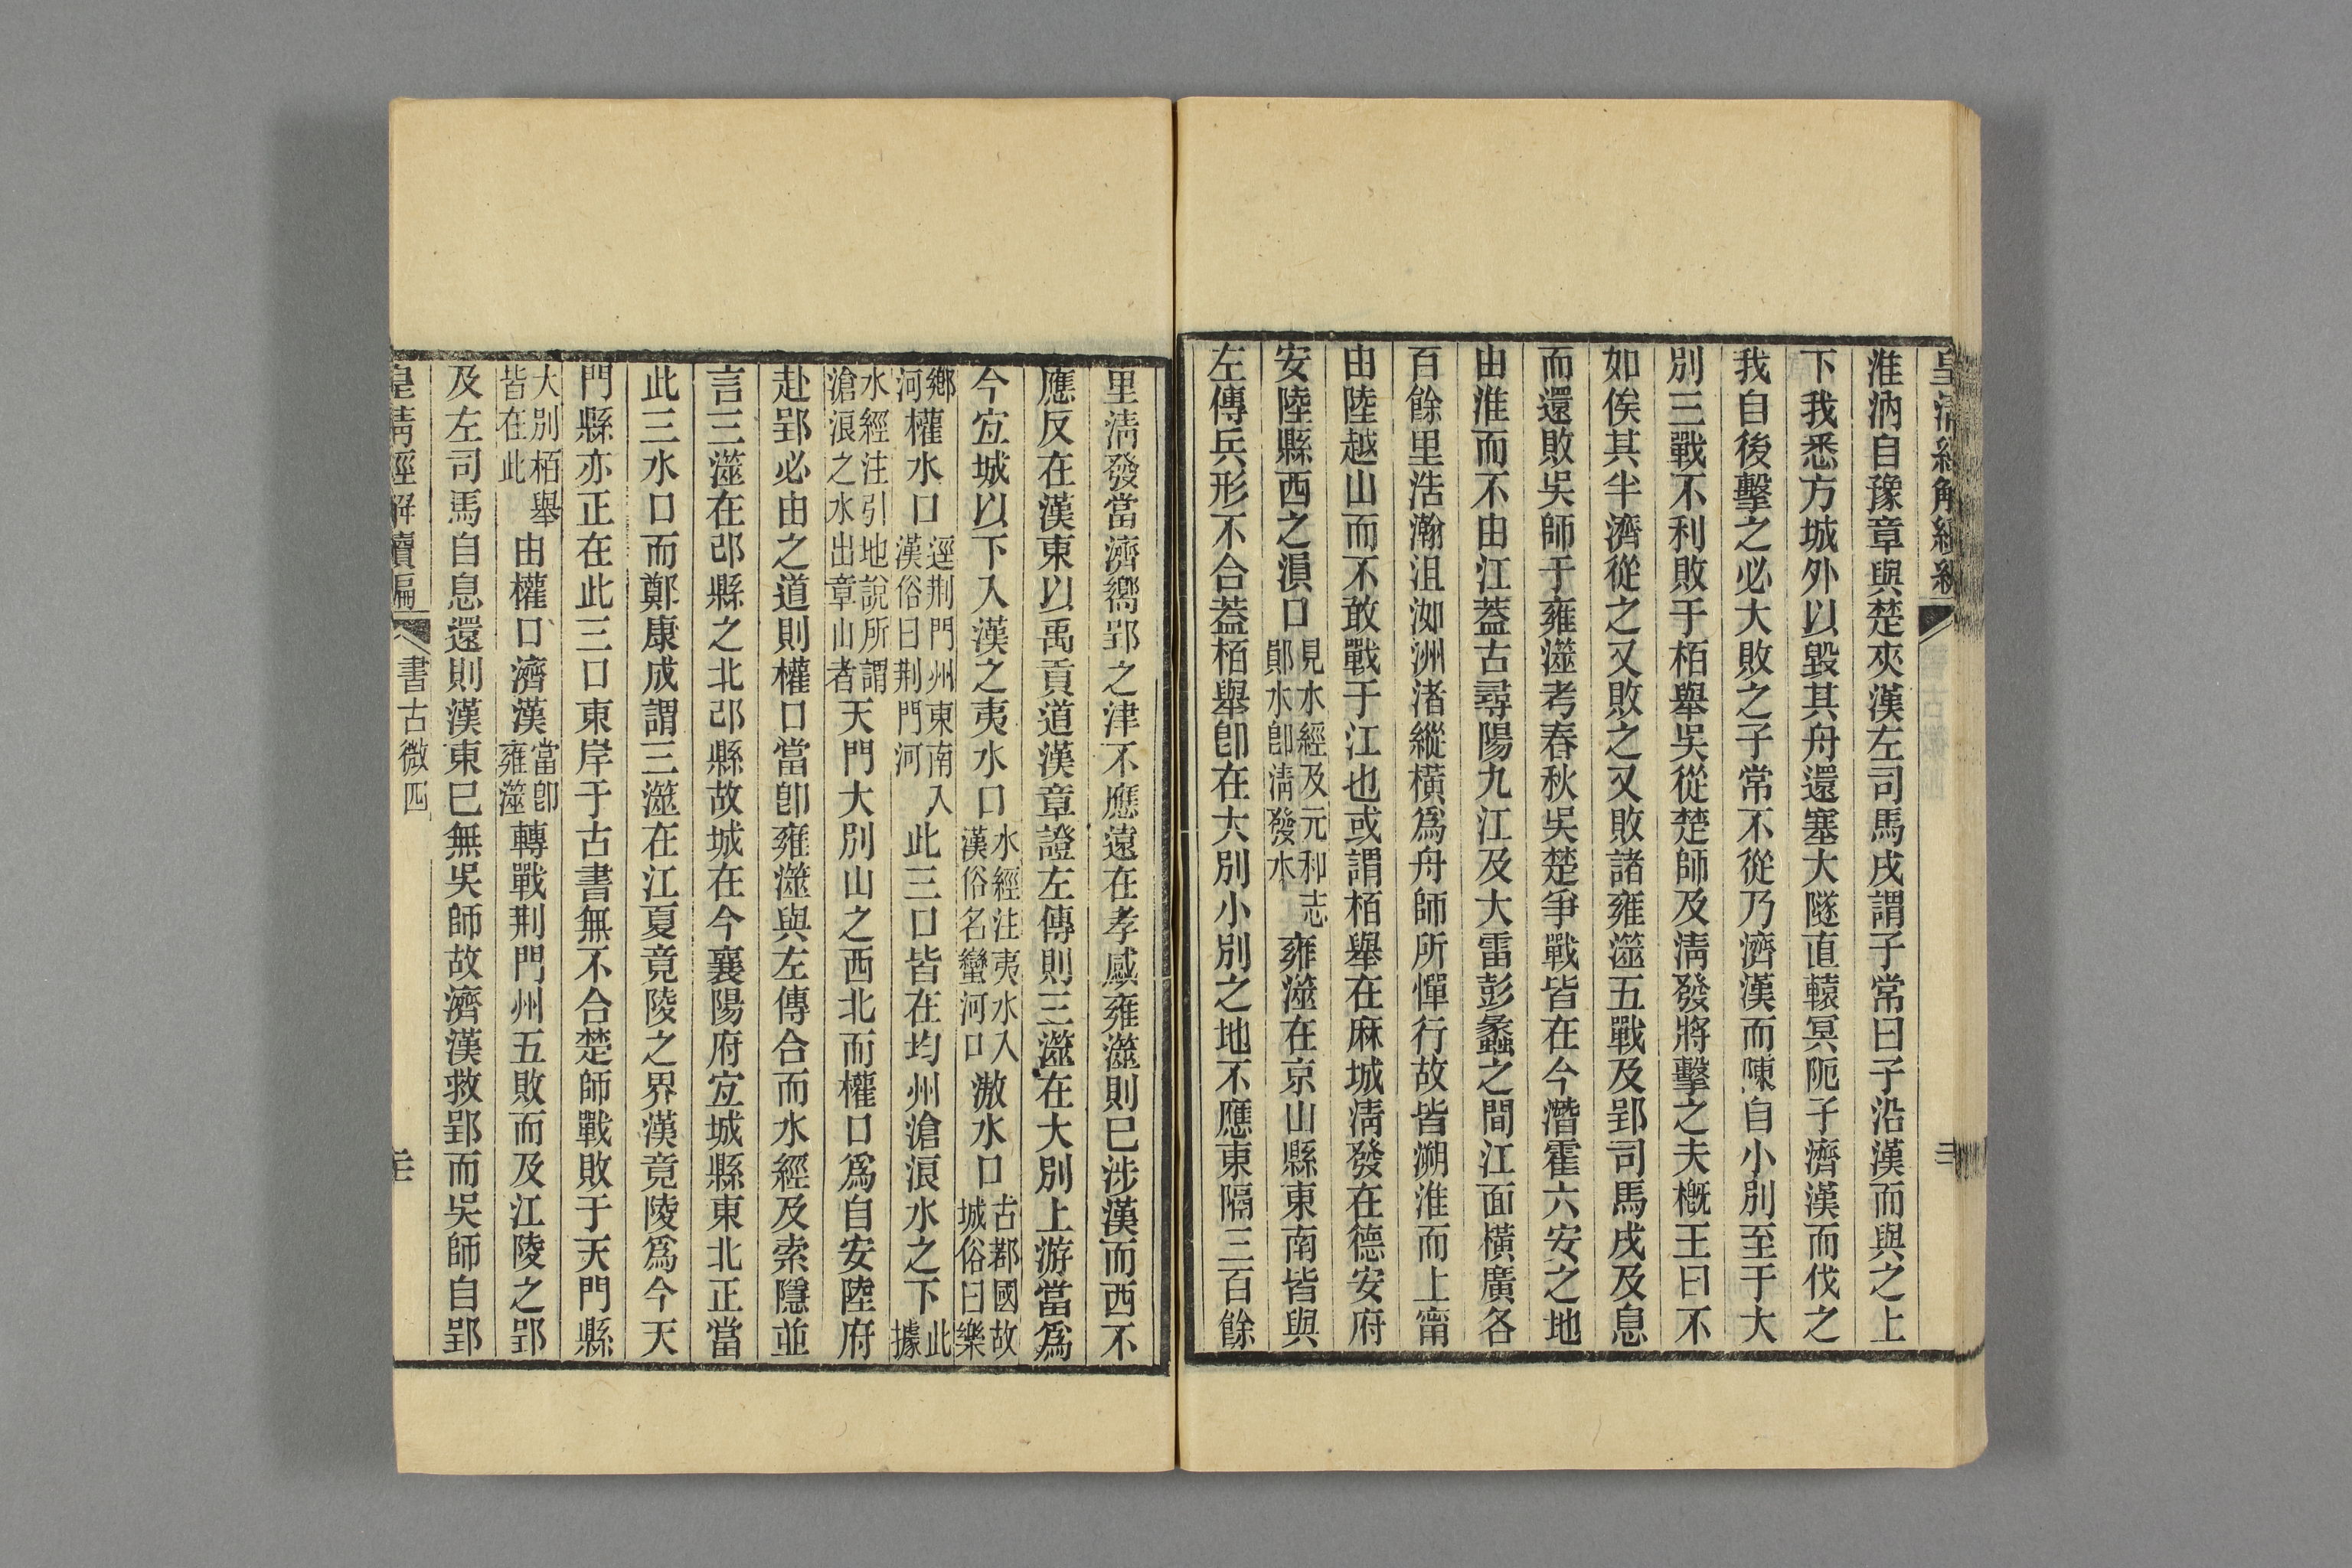 皇清經解續編
淮汭自豫章與楚夾漢左司馬戌謂子常曰子沿漢而與之上
下我悉方城外以毀其舟還塞大隧直轅冥阨子濟漢而伐之
我自後擊之必大敗之子常不從乃濟漢而陳自小別至于大
別三戰不利敗于栢舉吳從楚師及淸發將擊之夫槪王曰不
如俟其半濟從之又敗之又敗諸雍澨五戰及郢司馬戌及息
而還敗吳師于雍澨考春秋吳楚爭戰皆在今潛霍六安之地
由淮而不由江蓋古尋陽九江及大雷彭蠡之間江面橫廣各
百餘里浩瀚沮洳洲渚縱橫爲舟師所憚行故皆溯淮而上甯
由陸越山而不敢戰于江也或謂栢舉在麻城淸發在德安府
安陸縣西之溳口見水經及元和志鄖水卽淸發水雍澨在京山縣東南皆與
左傳兵形不合蓋栢舉卽在大別小別之地不應東隔三百餘
里淸發當濟嚮郢之津不應遠在孝感雍澨則已涉漢而西不
應反在漢東以禹貢道漢章證左傳則三澨在大別上游當爲
今宜城以下入漢之夷水口水經注夷水入漢俗名蠻河口滶水口古鄀國故城俗曰樂
鄉河權水口逕荆門州東南入漢俗曰荆門河此三口皆在均州滄浪水之下此據
水經注引地說所謂滄浪之水出章山者天門大別山之西北而權口爲自安陸府
赴郢必由之道則權口當卽雍澨與左傳合而水經及索隱並
言三澨在邔縣之北邔縣故城在今襄陽府宜城縣東北正當
此三水口而鄭康成謂三澨在江夏竟陵之界漢竟陵爲今天
門縣亦正在此三口東岸于古書無不合楚師戰敗于天門縣
大別栢舉皆在此由權口濟漢當卽雍澨轉戰荆門州五敗而及江陵之郢
及左司馬自息還則漢東已無吳師故濟漢救郢而吳師自郢
皇淸經解續編 書古微四